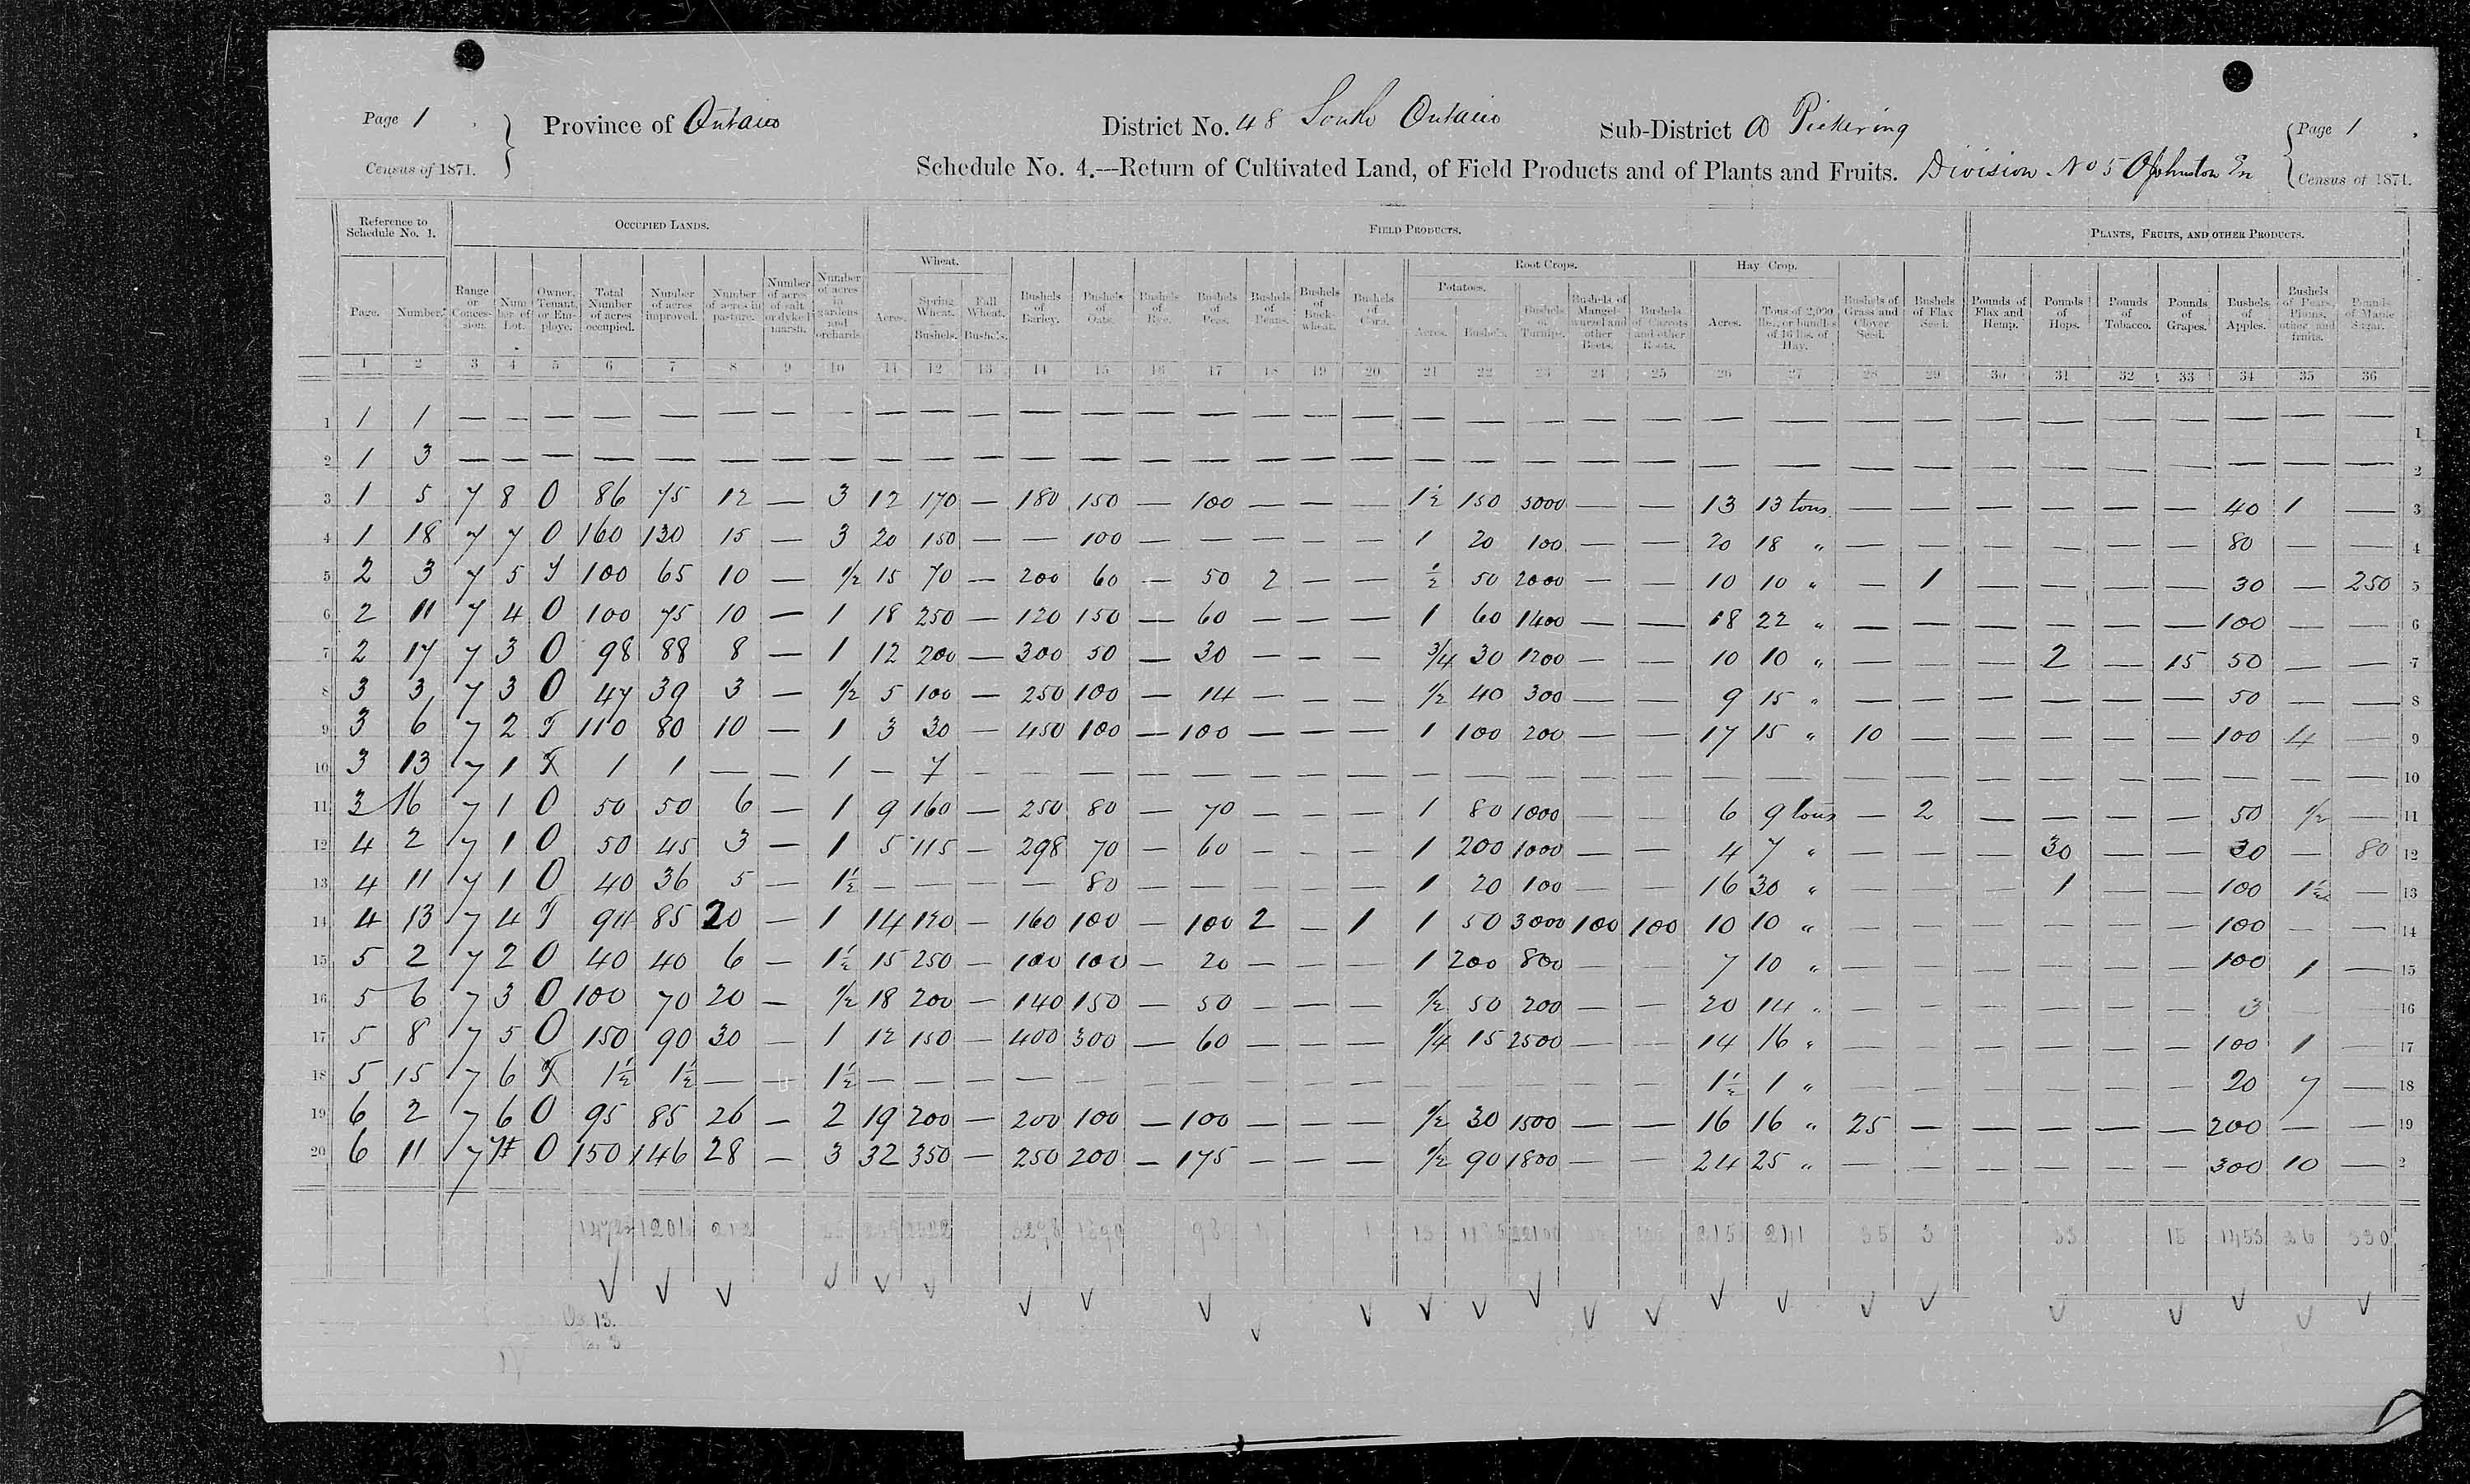 Page 1
Province of Ontario
District No. 48 South Ontario
Sub-District a Pickering
Page 1
Census of 1871.
Schedule No. 4.—Return of Cultivated Land, of Field Products and of Plants and Fruits. Division No 5 Johnston En
Census of 1871.
Reference to Schedule No. 1.
OCCUPIED LANDS.
FIELD PRODUCTS.
PLANTS, FRUITS, AND OTHER PRODUCTS.
Wheat.
Root Crops.
Hay Crop.
Potatoes.
Page. Number. Range or Concession. Number of Lot. Owner, Tenant, or Employe. Total Number of acres occupied. Number of acres improved. Number of acres in pasture. Number of acres of salt or dyked marsh. Number of acres in gardens and orchards. Acres. Spring Wheat. Bushels. Fall Wheat. Bushels. Bushels of Barley. Bushels of Oats. Bushels of Rye. Bushels of Peas. Bushels of Beans. Bushels of Buckwheat. Bushels of Corn. Acres. Bushels. Bushels of Turnips. Bushels of Mangel-wurzel and other Beets. Bushels of Carrots and other Roots. Acres. Tons of 2,000 lbs., or bundles of 16 lbs. of Hay. Bushels of Grass and Clover Seed. Bushels of Flax Seed. Pounds of Flax and Hemp. Pounds of Hops. Pounds of Tobacco. Pounds of Grapes. Bushels of Apples. Bushels of Pears, Plums, other and fruits. Pounds of Maple Sugar.
1 2 3 4 5 6 7 8 9 10 11 12 13 14 15 16 17 18 19 20 21 22 23 24 25 26 27 28 29 30 31 32 33 34 35 36
1 1 1 — — — — — — — — — — — — — — — — — — — — — — — — — — — — — — — — — — 1
2 1 3 — — — — — — — — — — — — — — — — — — — — — — — — — — — — — — — — — — 2
3 1 5 7 8 O 86 75 12 — 3 12 170 — 180 150 — 100 — — — 1½ 150 3000 — — 13 13 tons — — — — — — 40 1 — 3
4 1 18 7 7 O 160 130 15 — 3 20 150 — — 100 — — — — — 1 20 100 — — 20 18 " — — — — — — 80 — — 4
5 2 3 7 5 T 100 65 10 — ½ 15 70 — 200 60 — 50 2 — — ½ 50 2000 — — 10 10 " — 1 — — — — 30 — 250 5
6 2 11 7 4 O 100 75 10 — 1 18 250 — 120 150 — 60 — — — 1 60 1400 — — 18 22 " — — — — — — 100 — — 6
7 2 17 7 3 O 98 88 8 — 1 12 200 — 300 50 — 30 — — — ¾ 30 1200 — — 10 10 " — — — 2 — 15 50 — — 7
8 3 3 7 3 O 47 39 3 — ½ 5 100 — 250 100 — 14 — — — ½ 40 300 — — 9 15 " — — — — — — 50 — — 8
9 3 6 7 2 T 110 80 10 — 1 3 30 — 450 100 — 100 — — — 1 100 200 — — 17 15 " 10 — — — — — 100 4 — 9
10 3 13 7 1 T 1 1 — — 1 — 7 — — — — — — — — — — — — — — — — — — — — — — — — 10
11 3 16 7 1 O 50 50 6 — 1 9 160 — 250 80 — 70 — — — 1 80 1000 — — 6 9 tons — 2 — — — — 50 ½ — 11
12 4 2 7 1 O 50 45 3 — 1 5 115 — 298 70 — 60 — — — 1 200 1000 — — 4 7 " — — — 30 — — 30 — 80 12
13 4 11 7 1 O 40 36 5 — 1½ — — — — 80 — — — — — 1 20 100 — — 16 30 " — — — 1 — — 100 1½ — 13
14 4 13 7 4 T 94 85 20 — 1 14 120 — 160 100 — 100 2 — 1 1 50 3000 100 100 10 10 " — — — — — — 100 — — 14
15 5 2 7 2 O 40 40 6 — 1½ 15 250 — 100 100 — 20 — — — 1 200 800 — — 7 10 " — — — — — — 100 1 — 15
16 5 6 7 3 O 100 70 20 — ½ 18 200 — 140 150 — 50 — — — ½ 50 200 — — 20 14 " — — — — — — 3 — — 16
17 5 8 7 5 O 150 90 30 — 1 12 150 — 400 300 — 60 — — — ¼ 15 2500 — — 14 16 " — — — — — — 100 1 — 17
18 5 15 7 6 T 1½ 1½ — — 1½ — — — — — — — — — — — — — — — 1½ 1 " — — — — — — 20 7 — 18
19 6 2 7 6 O 95 85 26 — 2 19 200 — 200 100 — 100 — — — ½ 30 1500 — — 16 16 " 25 — — — — — 200 — — 19
20 6 11 7 7 O 150 146 28 — 3 32 350 — 250 200 — 175 — — — ½ 90 1800 — — 24 25 " — — — — — — 300 10 — 2
1201 212 2522 3298 1890 1 13 22100 215 241 35 3 33 15 1453 26 330